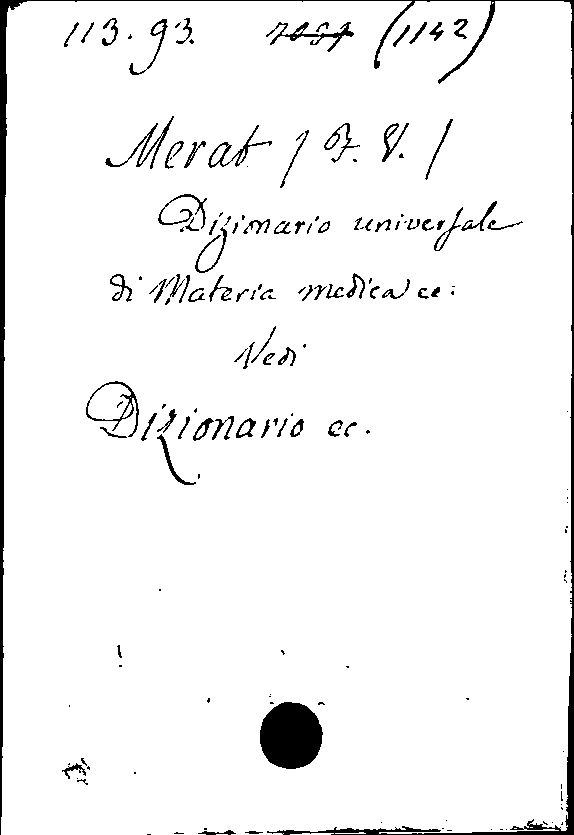 113.93. (1142)
Merat / F. V. /
Dizionario universale
di Materia medica ec:
Vedi
Dizionario ec.